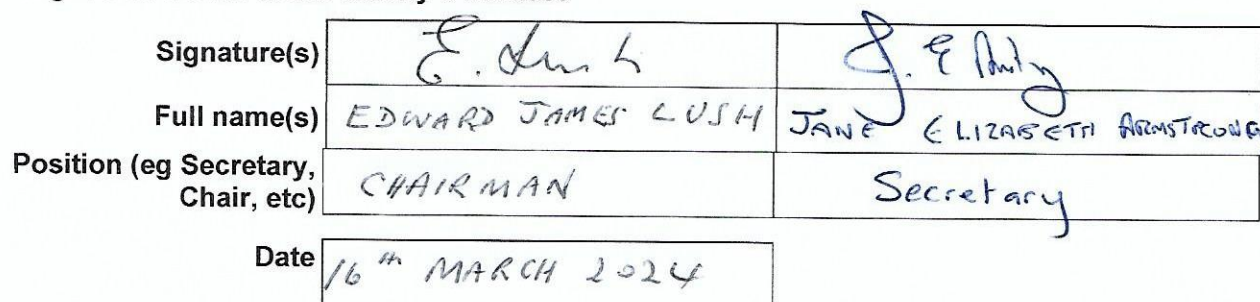 Signature(s) E. Lush J. E
Full name(s) EDWARD JAMES LUSH JANE ELIZABETH ARMSTRONG
Position (eg Secretary,
Chair, etc) CHAIRMAN Secretary
Date 16th MARCH 2024